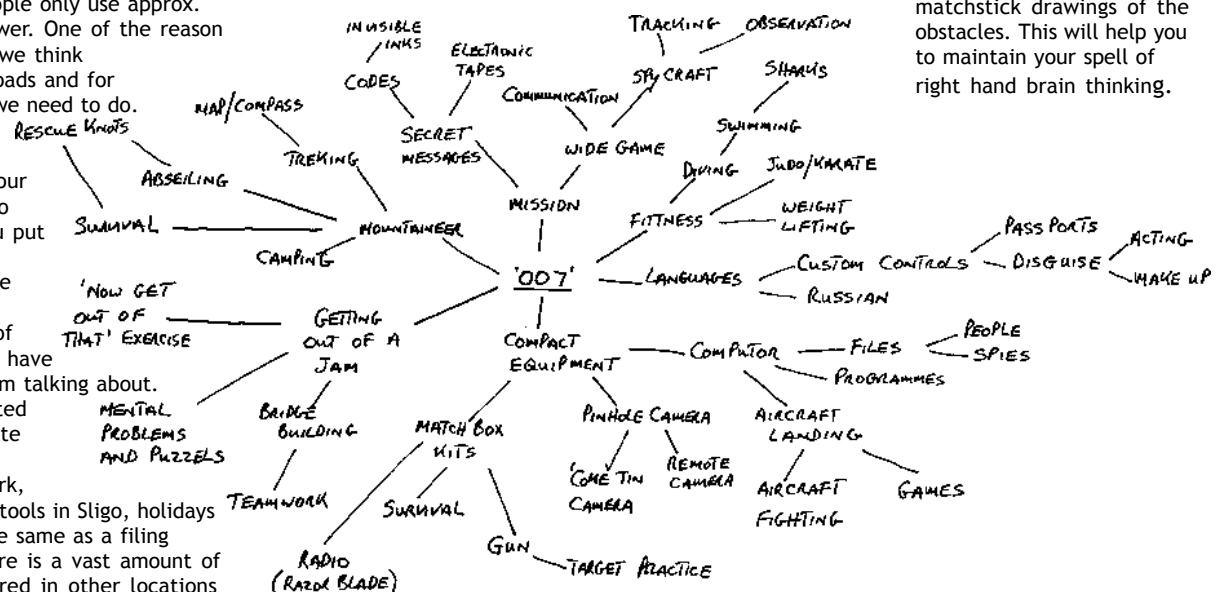 ople only use approx.
wer. One of the reason
we think
oads and for
we need to do.
our
o
u put
e
of
have
m talking about.
ted
te
rk,
tools in Sligo, holidays
e same as a filing
re is a vast amount of
red in other locations
matchstick drawings of the
obstacles. This will help you
to maintain your spell of
right hand brain thinking.
'007'
MISSION
SECRET
MESSAGES
CODES
INVISIBLE
INKS
ELECTRONIC
TAPES
WIDE GAME
COMMUNICATION
SPYCRAFT
TRACKING
OBSERVATION
FITTNESS
DIVING
SWIMMING
SHARKS
JUDO/KARATE
WEIGHT
LIFTING
LANGUAGES
CUSTOM CONTROLS
PASSPORTS
DISGUISE
ACTING
MAKE UP
RUSSIAN
COMPACT
EQUIPMENT
COMPUTOR
FILES
PEOPLE
SPIES
PROGRAMMES
AIRCRAFT
LANDING
AIRCRAFT
FIGHTING
GAMES
PINHOLE CAMERA
'COKE TIN
CAMERA
REMOTE
CAMERA
MATCH BOX
KITS
SURVIVAL
GUN
TARGET PRACTICE
RADIO
(RAZOR BLADE)
GETTING
OUT OF A
JAM
'NOW GET
OUT OF
THAT' EXERCISE
MENTAL
PROBLEMS
AND PUZZELS
BRIDGE
BUILDING
TEAMWORK
MOUNTAINEER
TREKING
MAP/COMPASS
ABSEILING
RESCUE KNOTS
SURVIVAL
CAMPING